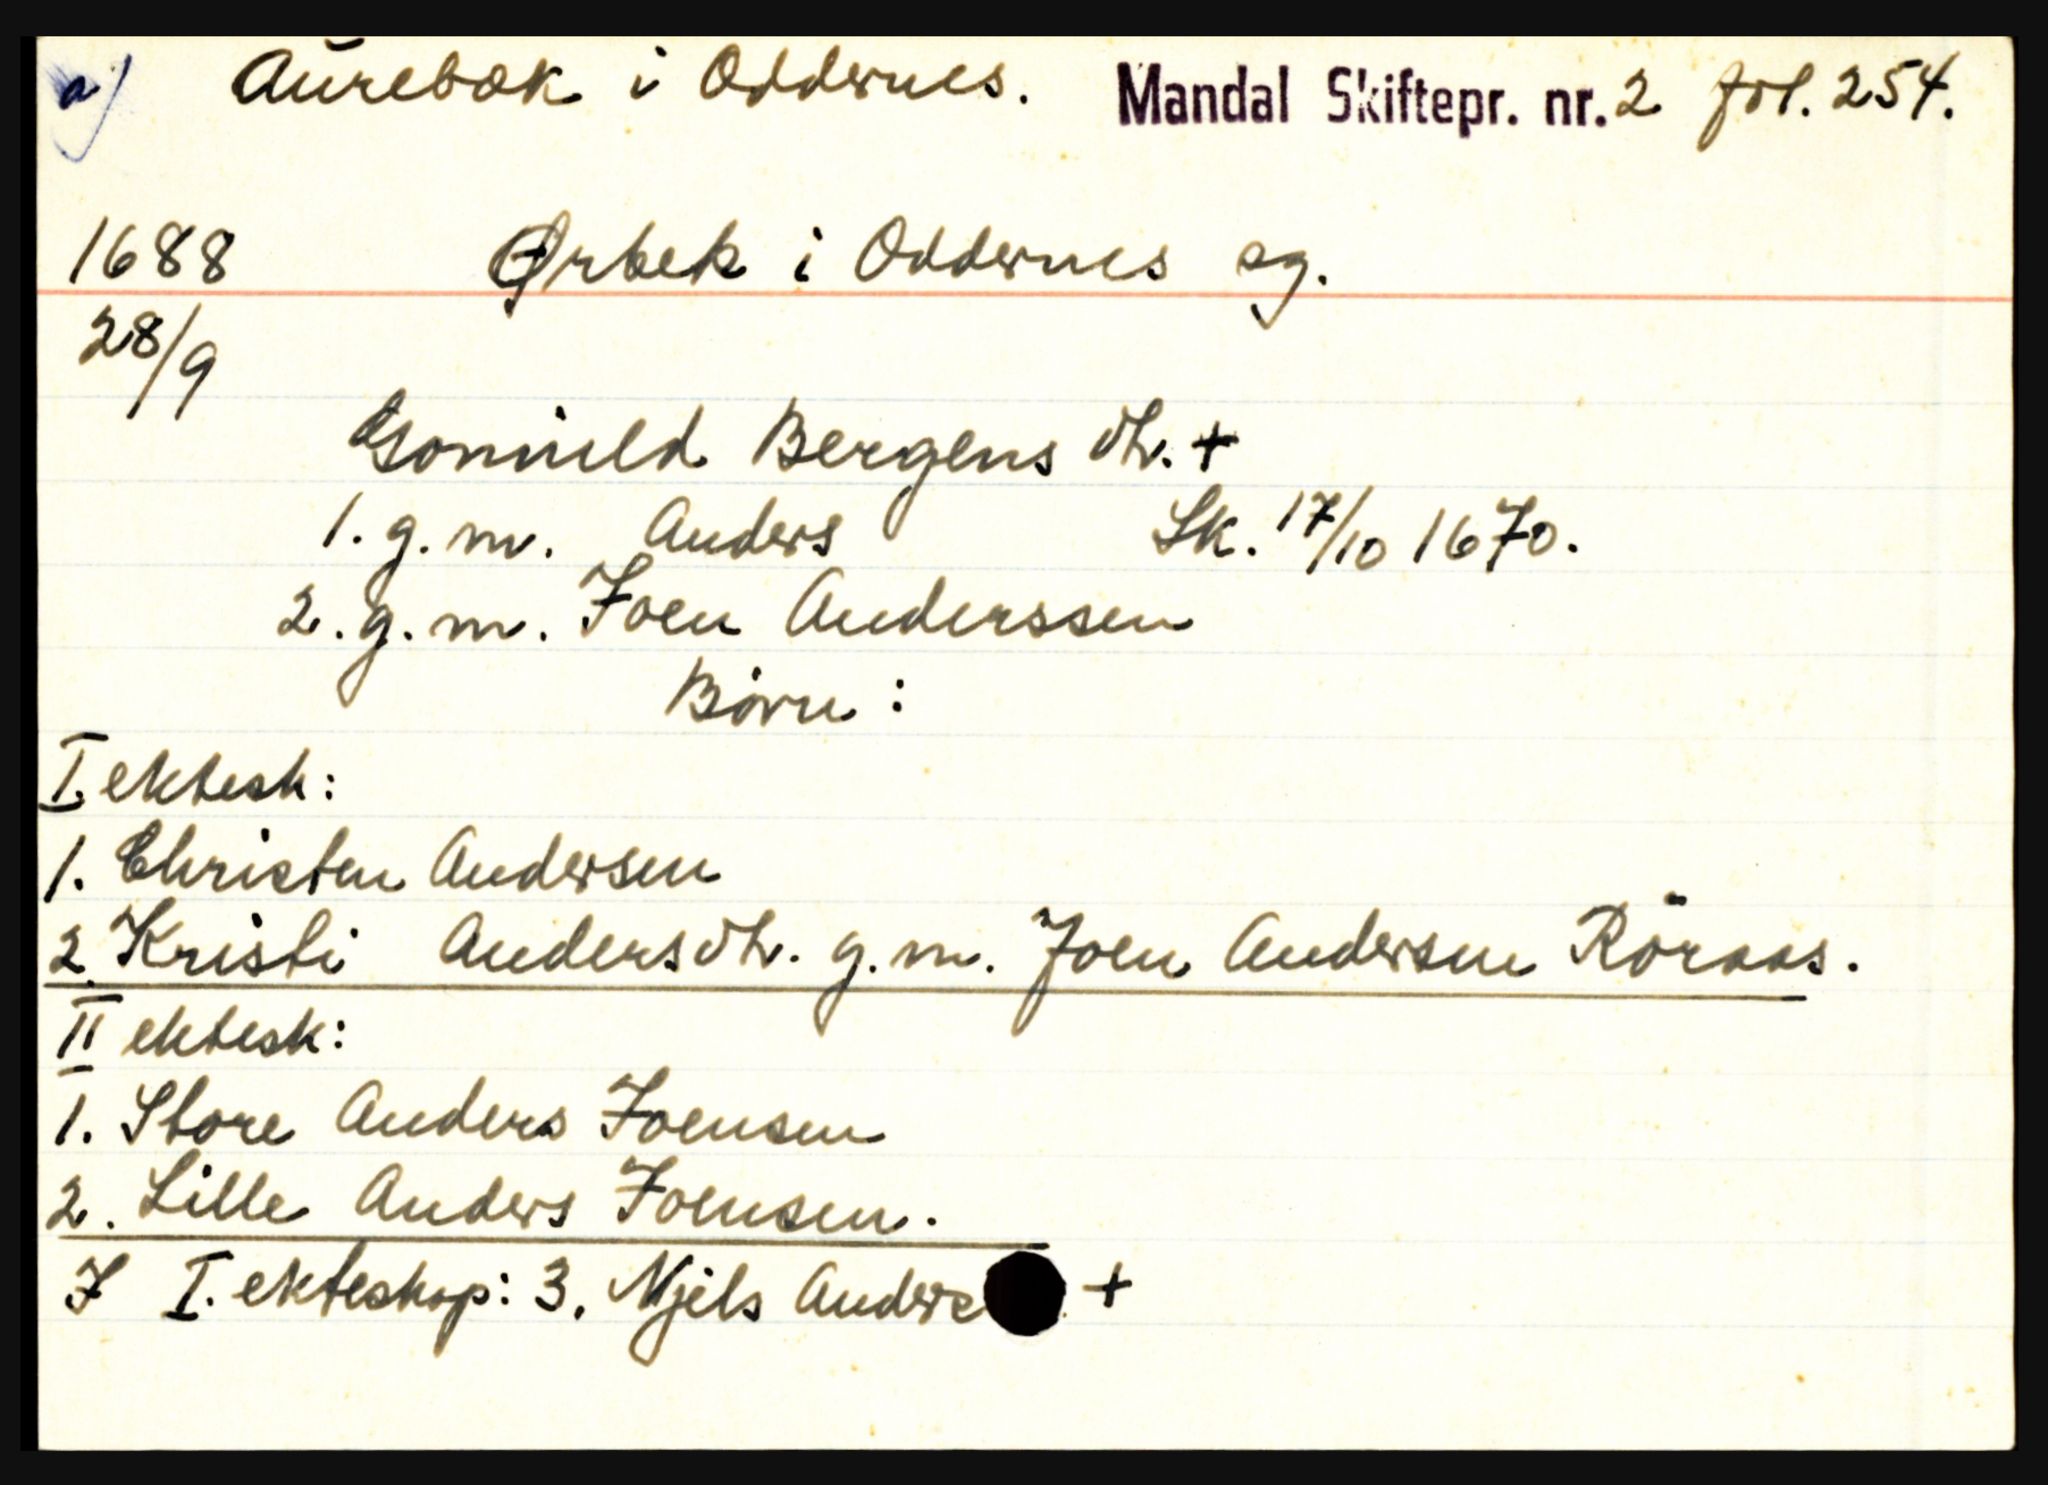 a) Aurebæk i Oddernes. Mandal Skiftepr. nr. 2 fol. 254.
1688 Ørbek i Oddernes sg.
28/9
Gonnild Bergens dtr. +
1. g. m. Anders Sk. 17/10 1670.
2. g. m. Joen Anderssen
Børn :
I. ektesk:
1. Christen Andersen
2. Kristi Andersdtr. g. m. Joen Andersen Röraas.
II ektesk:
1. Store Anders Joensen
2. Lille Anders Joensen.
I I. ekteskap: 3. Njels Anders +